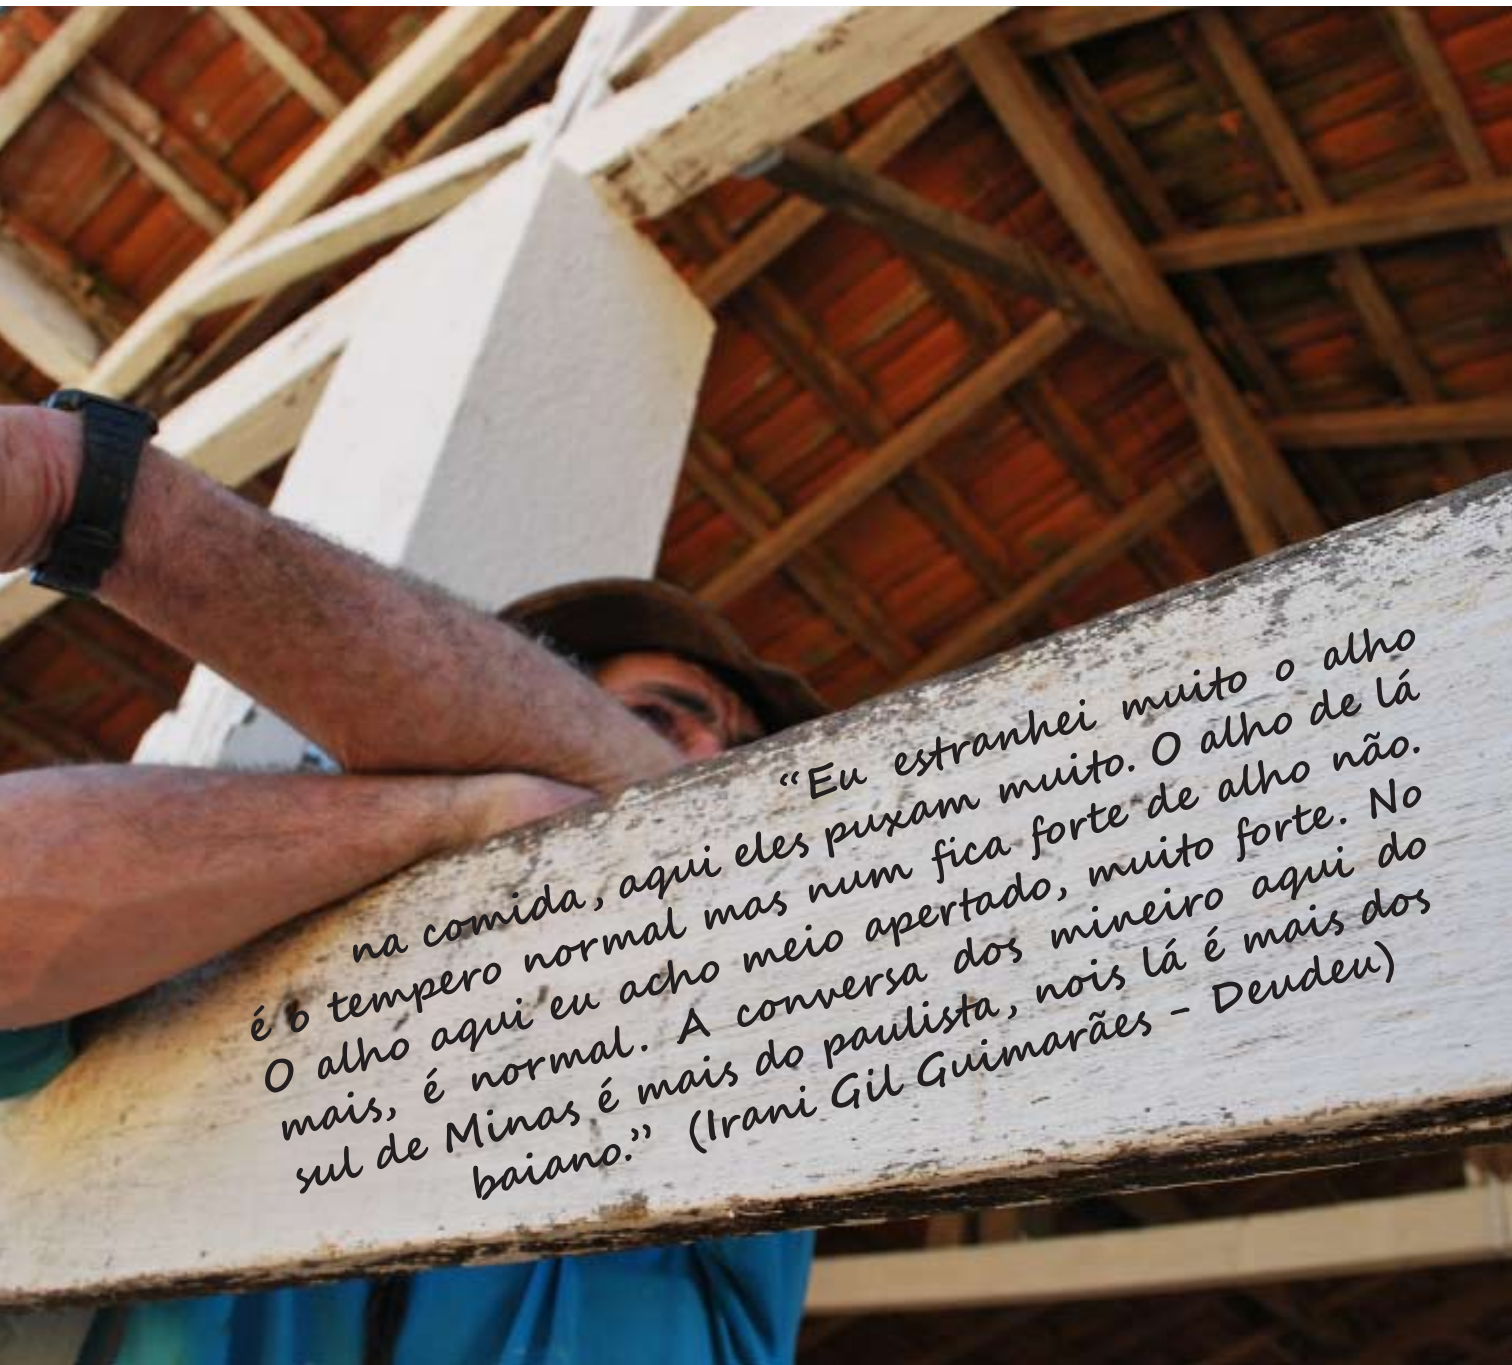 “Eu estranhei muito o alho
na comida, aqui eles puxam muito. O alho de lá
é o tempero normal mas num fica forte de alho não.
O alho aqui eu acho meio apertado, muito forte. No
mais, é normal. A conversa dos mineiro aqui do
sul de Minas é mais do paulista, nois lá é mais dos
baiano.” (Irani Gil Guimarães - Deudeu)